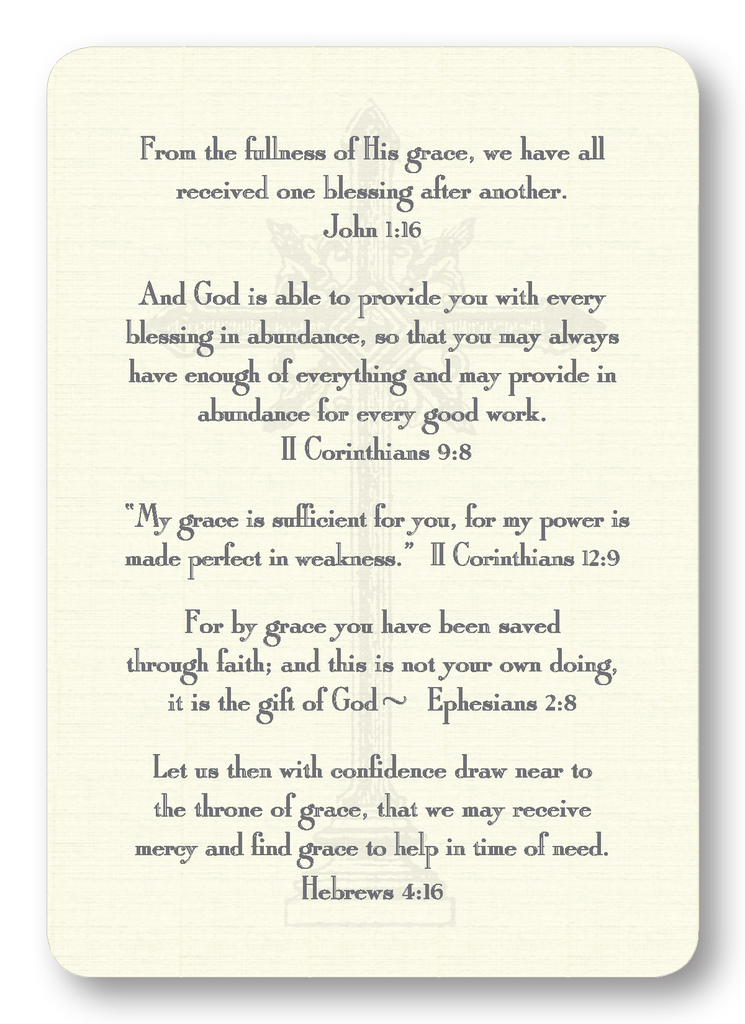 From the fullness of His grace, we have all
received one blessing after another.
John 1:16
And God is able to provide you with every
blessing in abundance, so that you may always
have enough of everything and may provide in
abundance for every good work.
II Corinthians 9:8
“My grace is sufficient for you, for my power is
made perfect in weakness.” II Corinthians 12:9
For by grace you have been saved
through faith; and this is not your own doing,
it is the gift of God~ Ephesians 2:8
Let us then with confidence draw near to
the throne of grace, that we may receive
mercy and find grace to help in time of need.
Hebrews 4:16